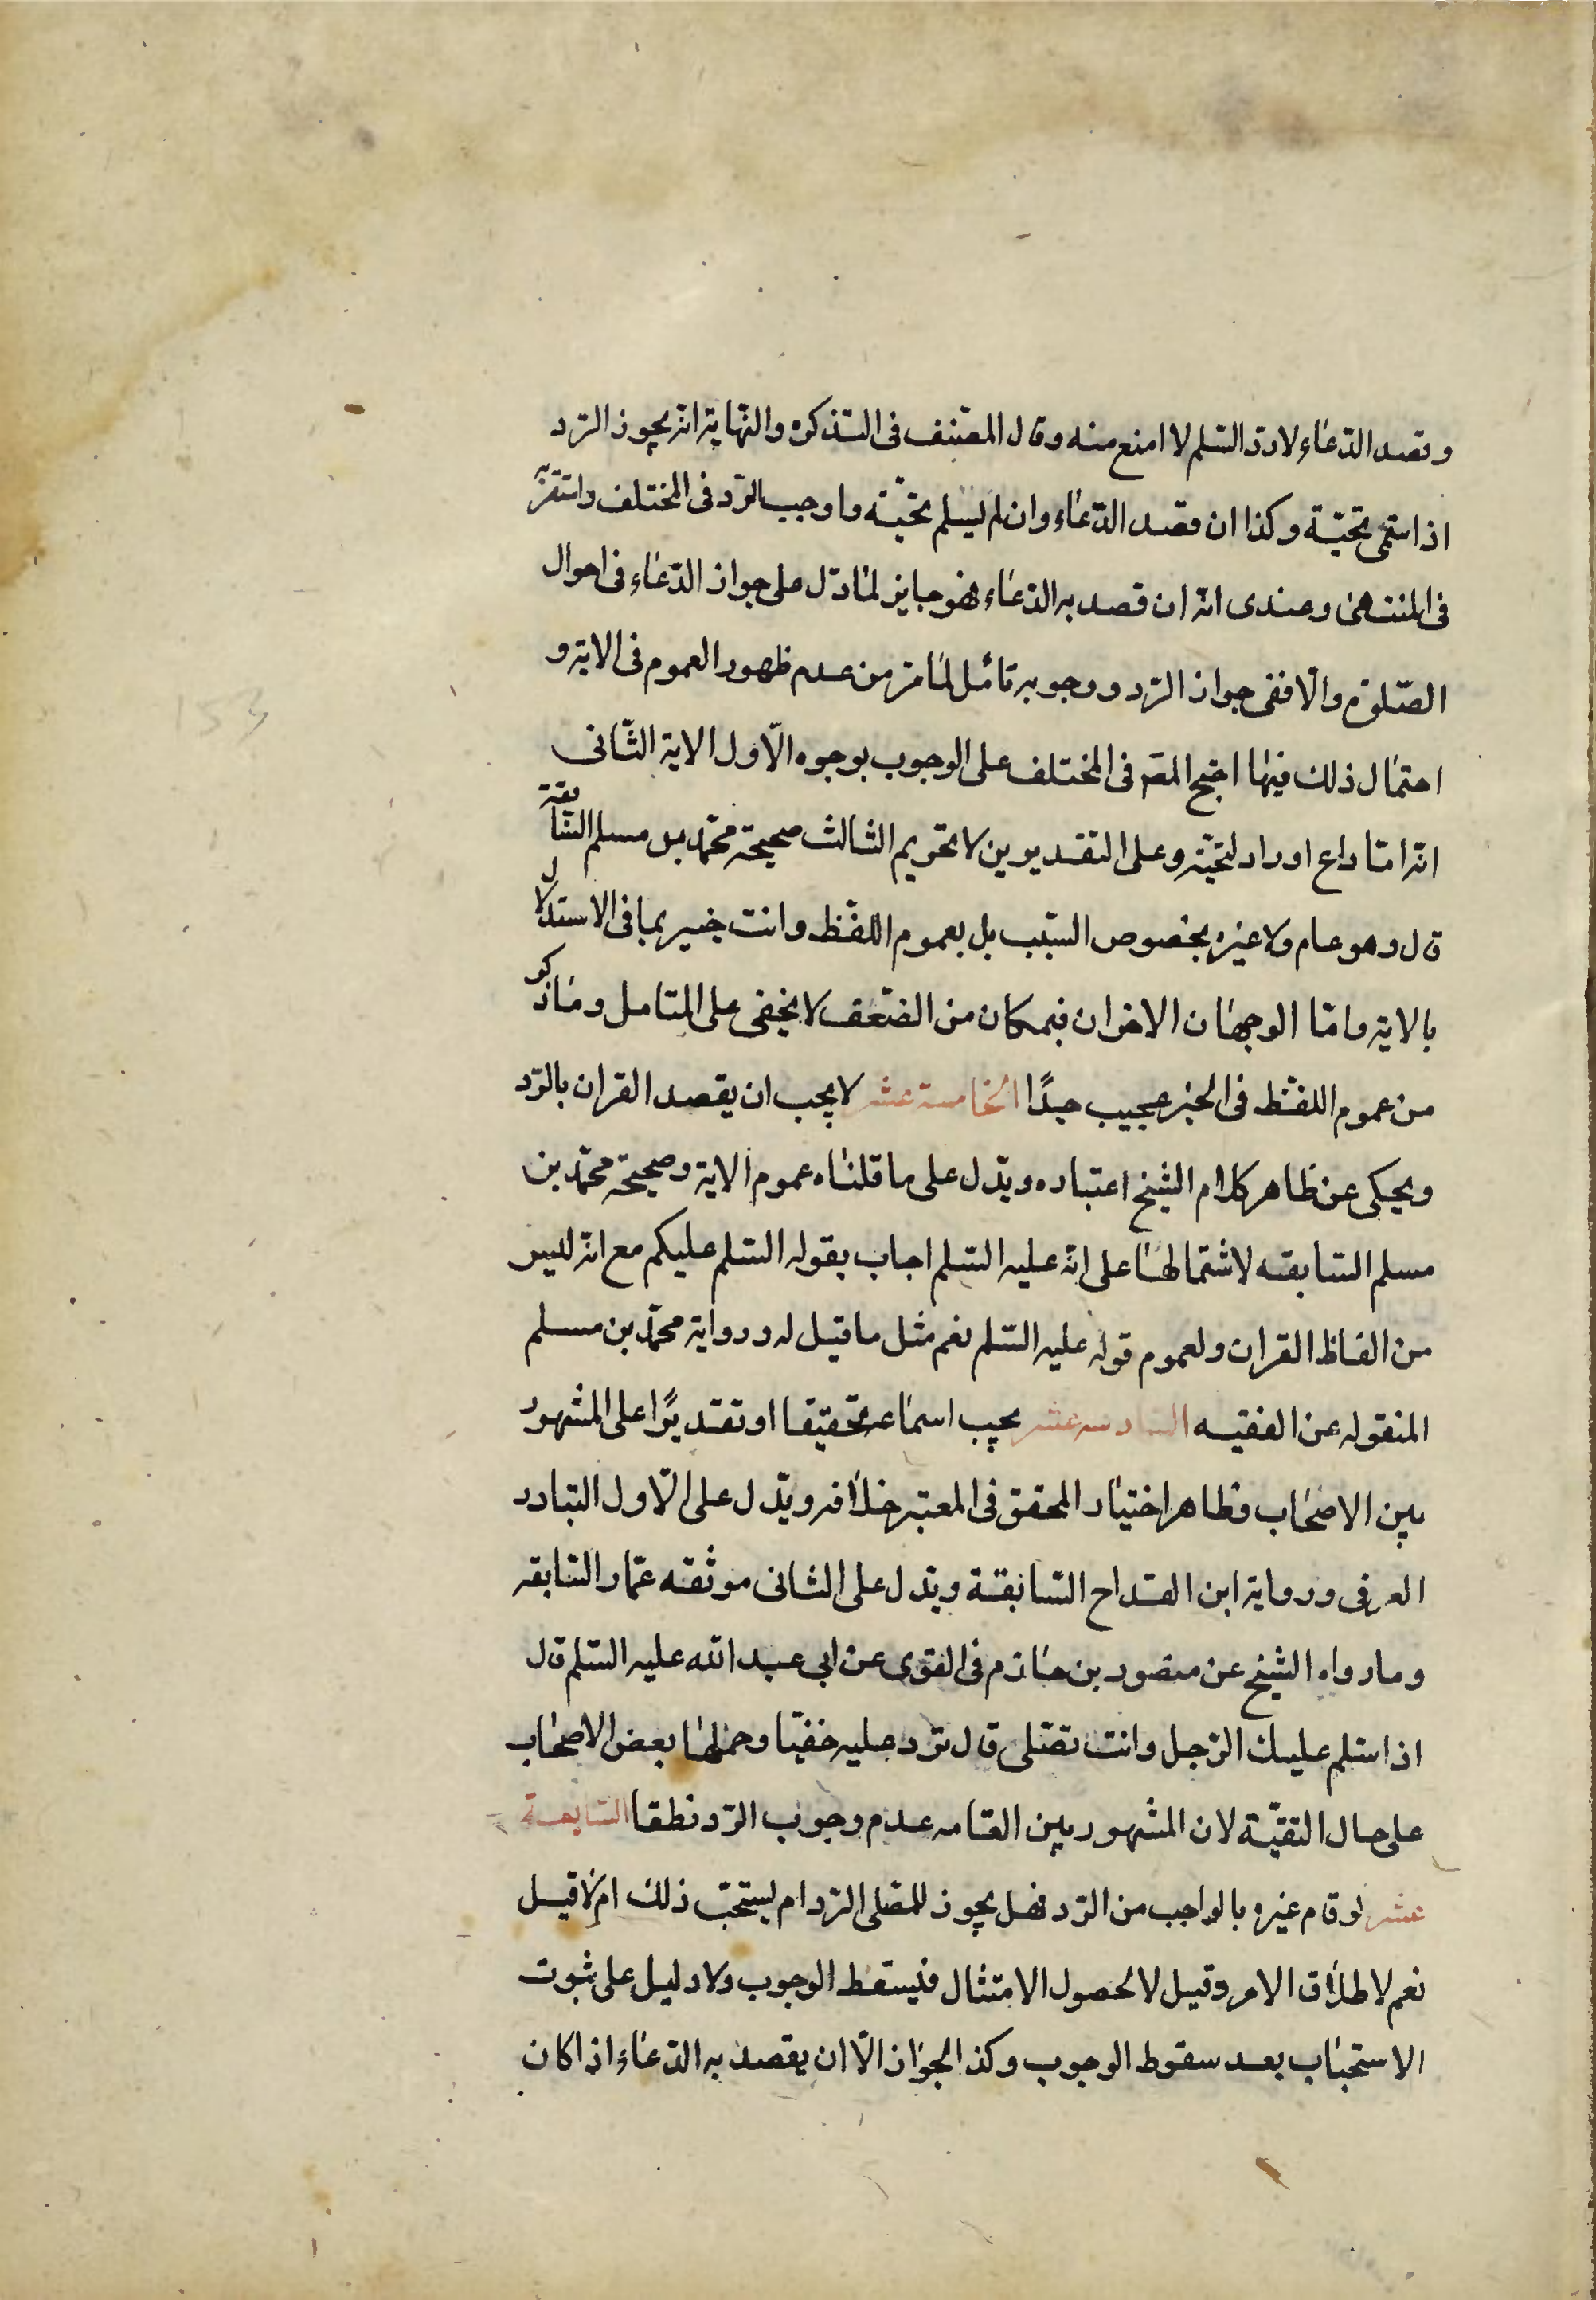 وقصد الدعاء لا رد السلم لا امنع منه وقال المصنف فى التذكره والنهاية انه يجوز الرد
اذا سمى تحية وكذا ان قصد الدعاء وان لم يسلم تحية واوجب الرد فى المختلف واستقربه
فى المنتهى وعندى انه ان قصد به الدعاء فهو جايز لما دل على جواز الدعاء فى احوال
الصلوة والا ففى جواز الرد ووجوبه تامل لما مر من عدم ظهور العموم فى الاية و
احتمال ذلك فيها احتج المصر فى المختلف على الوجوب بوجوه الاول الاية الثانى
انه اما داع او راد لتحية وعلى التقديرين لا تحريم الثالث صحيحة محمد بن مسلم السابقة
قال وهو عام ولا عبرة بخصوص السبب بل بعموم اللفظ وانت خبير بما فى الاستدلال
بالاية واما الوجهان الاخران فبمكان من الضعف لا يخفى على المتامل وما ذكر
من عموم اللفظ فى الخبر عجيب جدًا الخامسة عشر لا يجب ان يقصد القران بالرد
ويحكى عن ظاهر كلام الشيخ اعتباره ويدل على ما قلناه عموم الاية وصحيحة محمد بن
مسلم السابقه لاشتمالها على انه عليه السلم اجاب بقوله السلم عليكم مع انه ليس
من الفاظ القران ولعموم قوله عليه السلم نعم مثل ما قيل له ورواية محمد بن مسلم
المنقوله عن الفقيه السادسه عشر يجب اسماعه تحقيقا او تقديرًا على المشهور
بين الاصحاب وظاهر اختيار المحقق فى المعتبر خلافه ويدل على الاول التبادر
العرفى ورواية ابن القداح السابقة ويدل على الثانى موثقه عمار السابقه
وما رواه الشيخ عن منصور بن حازم فى القوى عن ابى عبد الله عليه السلم قال
اذا سلم عليك الرجل وانت تصلى قال ترد عليه خفيا وحملها بعض الاصحاب
على حال التقية لان المشهور بين العامه عدم وجوب الرد نطقا السابعة
عشر لو قام غيره بالواجب من الرد فهل يجوز للمصلى الرد ام يستحب ذلك ام لا قيل
نعم لاطلاق الامر وقيل لا لحصول الامتثال فيسقط الوجوب ولا دليل على ثبوت
الاستحباب بعد سقوط الوجوب وكذا الجواز الا ان يقصد به الدعاء اذا كان